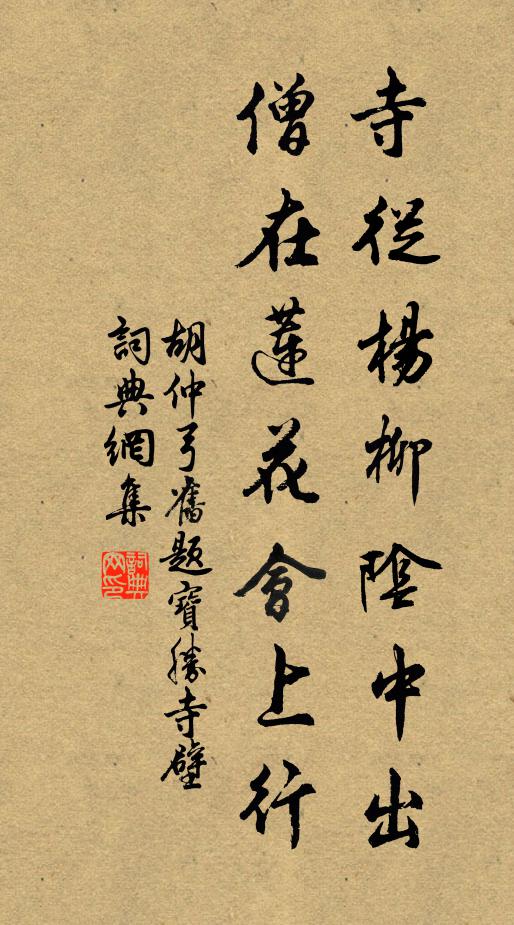 寺從楊柳陰中出
僧在蓮花會上行
胡仲弓舊題寶勝寺壁
詞典網集
詞典網印